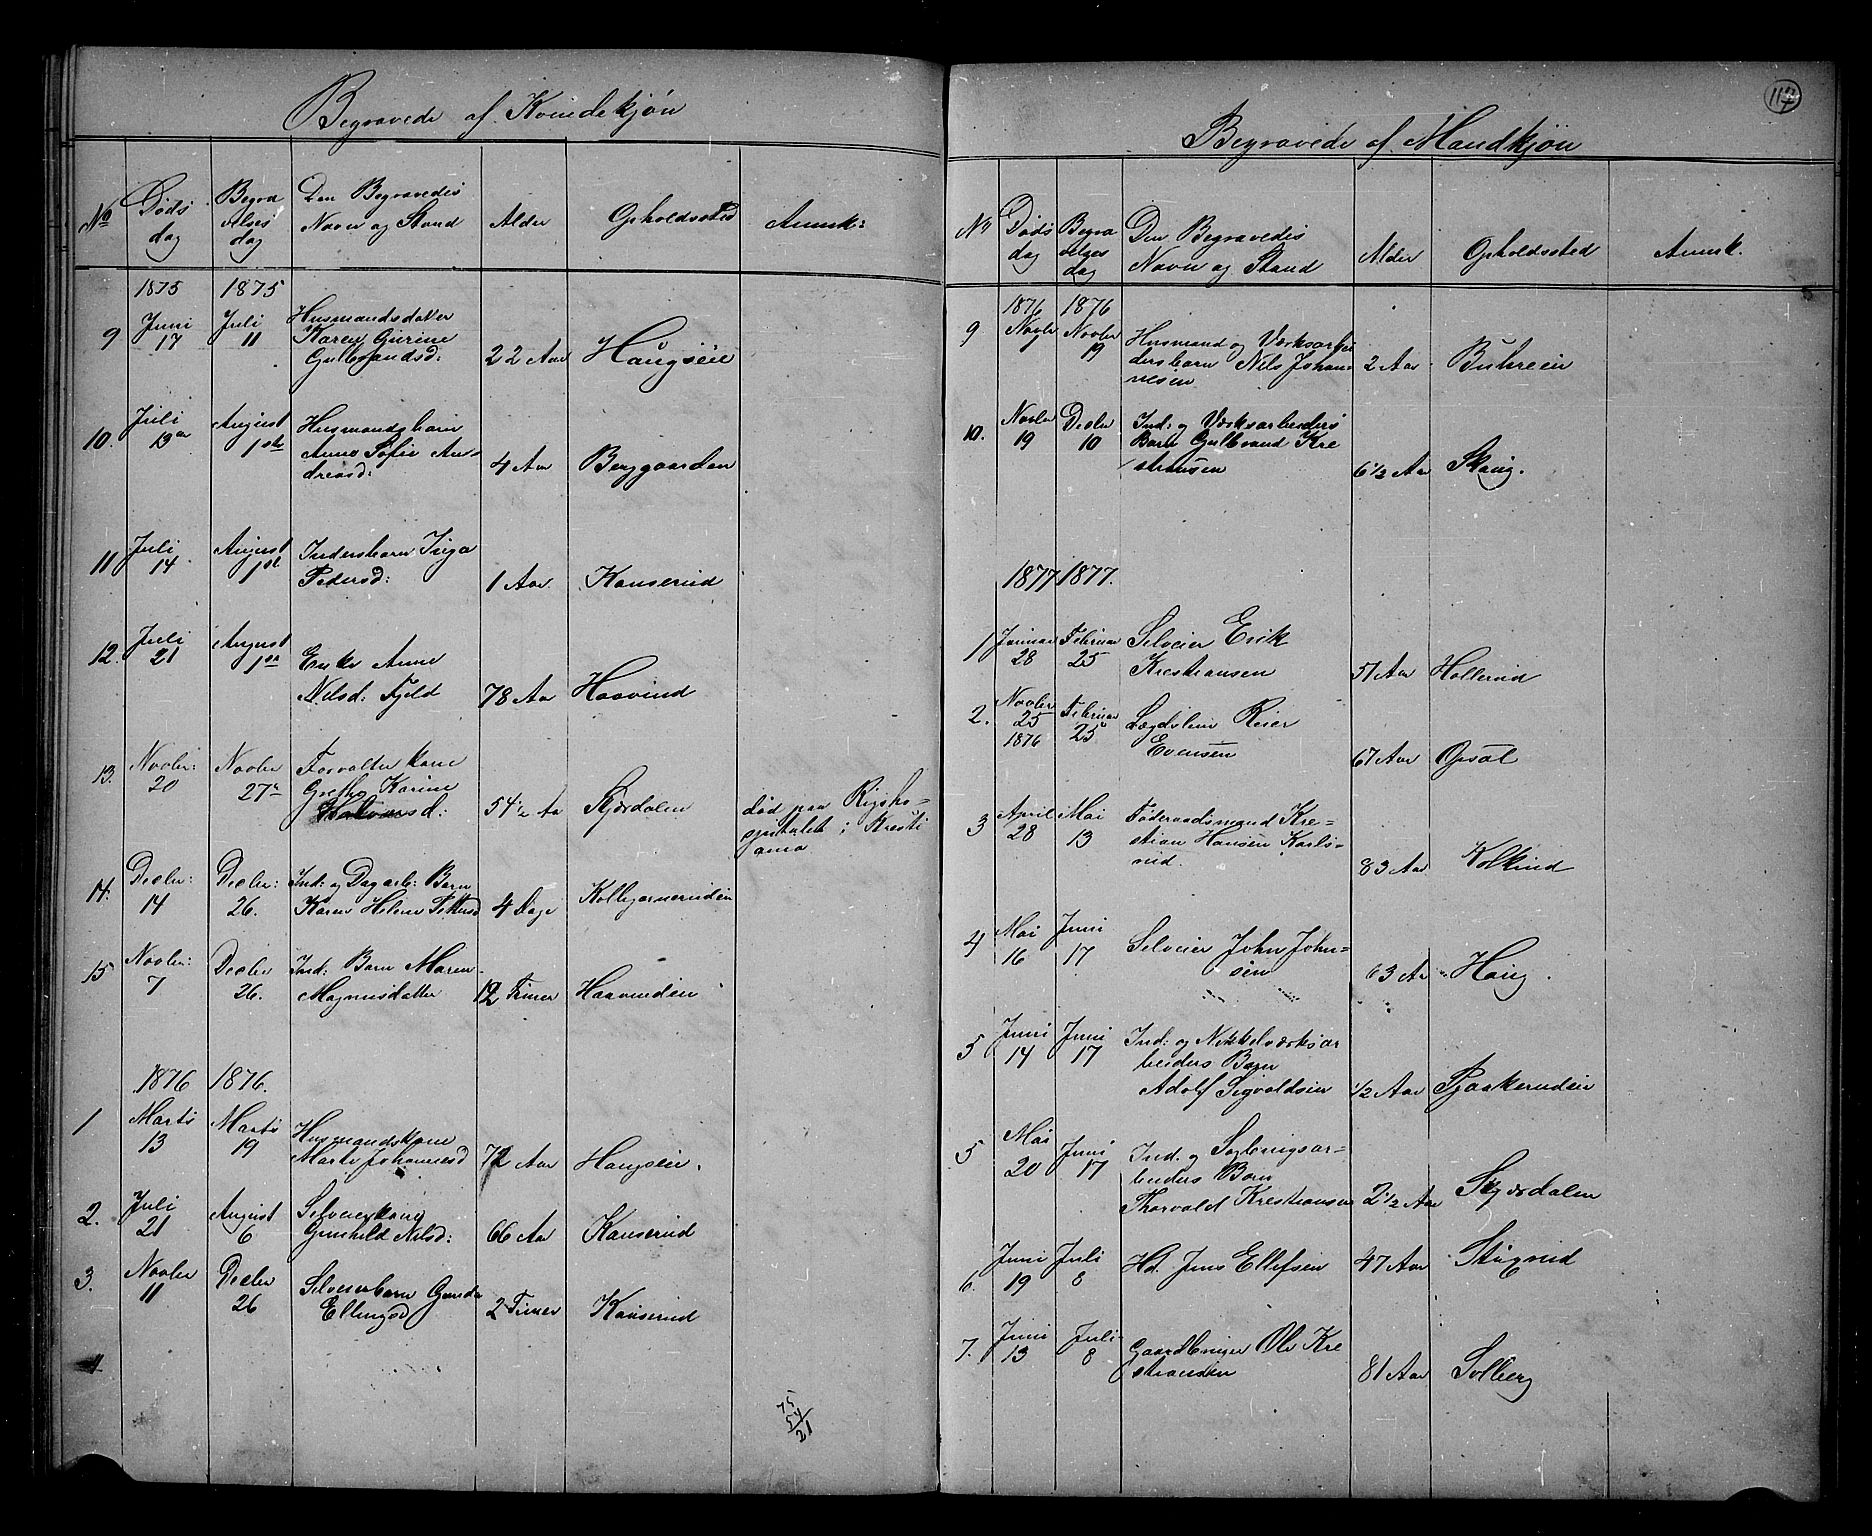 Begravede af Kvindekjøn
No
Døds
dag
Begra
velses
dag
Den Begravedes
Navn og Stand
Alder
Opholdssted
Anmk:
1875 1875
9 Juni 17 Juli 11 Husmandsdatter
Karen Gurine
Gulbrandsd: 22 Aar Haugseie
10. Juli August 1ste Husmandsbarn
Anne Sofie An-
dreasd: 4 Aar Berggaarden
11 Juli 14 August 1ste Inderstbarn Inga
Pedersd: 1 Aar Kanserud
12. Juli 21 August Enke Anne
Nilsd: Fjeld 78 Aar Haavind
13. Novbr: 20 Novbr 27 Forvalterkone
Grethe Karine
54 1/2 Aa Skjærdalen død paa Rigsho-
spitalet i Kristi
ania
14. Decbr: 14 Decbr: 26. Ind: og Dagarb: Barn
Karen Helene 4 Dage
15 Novbr: 7 Decbr 26. Ind: Barn Maren
Magnusdatter 12 Timer
1876 1876.
1 Marts 13 Marts 19 Husmandskone
Marte Johannesd 72 Aar Haugseie.
2. Juli 21 August 6 Selveierkone
Gunhild Nilsd: 66 Aar Kanserud
3. Novbr 11 Decbr 26 Selveierbarn
Ellingsd 2 Timer Kanserud
75
54
21
117
Begravede af Mandkjøn
No
Døds
dag
Begra
velses
dag
Den Begravedes
Navn og Stand
Alder
Opholdssted
Anmk.
1876 1876
9 Novbr Novbr 19 Husmand og Værksarbei
dersbarn Nils Johan-
nesen 2 Aar
10. Novbr 19 Decbr 10 Ind: og Værksarbeiders
Barn Gulbrand Kre
stiansen 6 1/2 Aar Haug.
1877 1877.
1 Januar 28 Februar 25 Selveier Erik
Krestiansen 51 Aar Hollerud
2. Novbr 25 1876 Februar 25 Lægdslem Reier
Evensen 67 Aar Opsal
3 April 28 Mai 13 Føderaadsmand Kre-
stian Hansen Karls-
rud. 83 Aar
4 Mai 16 Juni 17 Selveier John John-
sen 63 Aar Haug.
5 Juni 14 Juni 17 Ind: og Nikkelværksar
beiders Barn
Adolf Sigvaldsen 1/2 Aar Pjaakerudeie
5 Mai 20 Juni 17 Ind. og Sagbrugsar-
beiders Barn
Thorvald Krestiansen 2 1/2 Aar Skjærdalen
6. Juni 19 Juli 8 Hd. Jens Ellefsen 47 Aar
7. Juni 13 Juli 8 Gaardbruger Ole Kre
stiansen 81 Aar Solberg